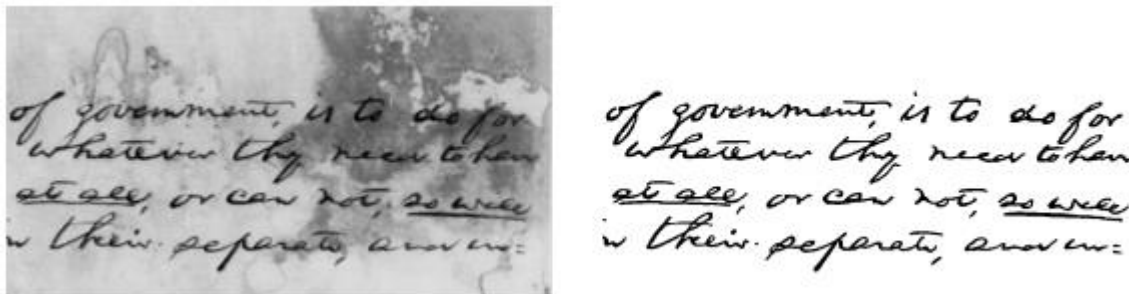 of government, is to do for
whatever they need to have
at all, or can not, so well
their separate, and in=
of government, is to do for
whatever they need to have
at all, or can not, so well
their separate, and in=